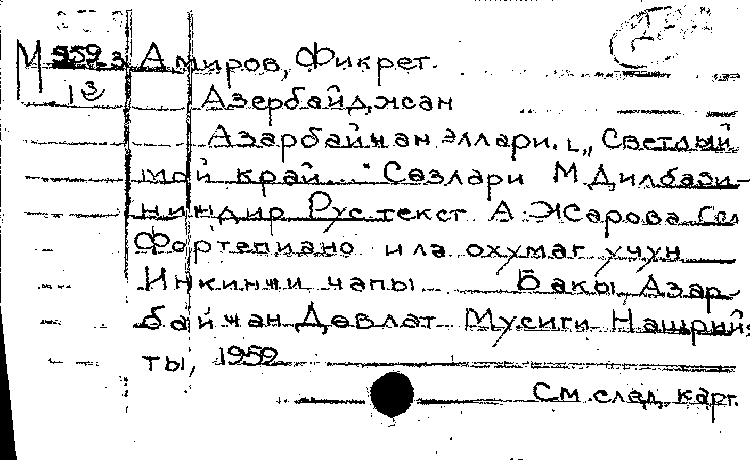 М 959.3 Амиров, Фикрет.
13 Азербайджан
Азәрбайҹан элләри. „Светлый
мой край..." Сөзләри М. Дилбази-
ниндир Рус текст А. Жарова
Фортепиано илә охумаг үчүн
Инкинҹи чапы Бакы, Азәр
байҹан Дөвләт Мусиги Нәшрий
ты, 1959
См. след. карт.